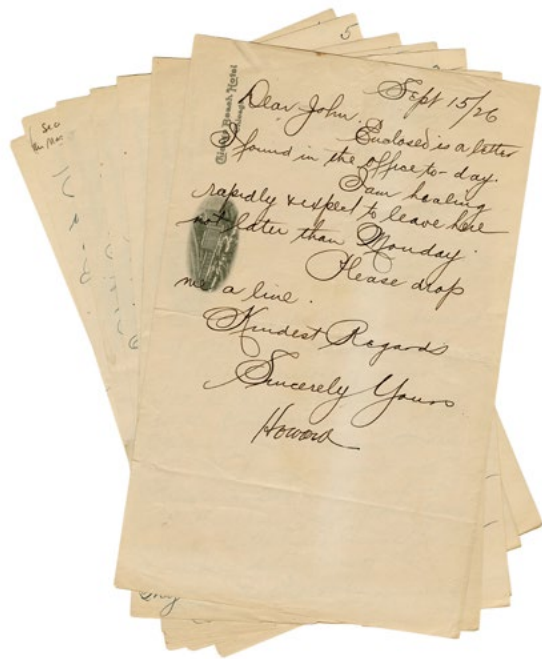 Sept 15/26
Dear John.
Enclosed is a letter
I found in the office to-day.
I am healing
rapidly & expect to leave here
not later than Monday.
Please drop
me a line.
Kindest Regards
Sincerely Yours
Howard
Beach Hotel
5